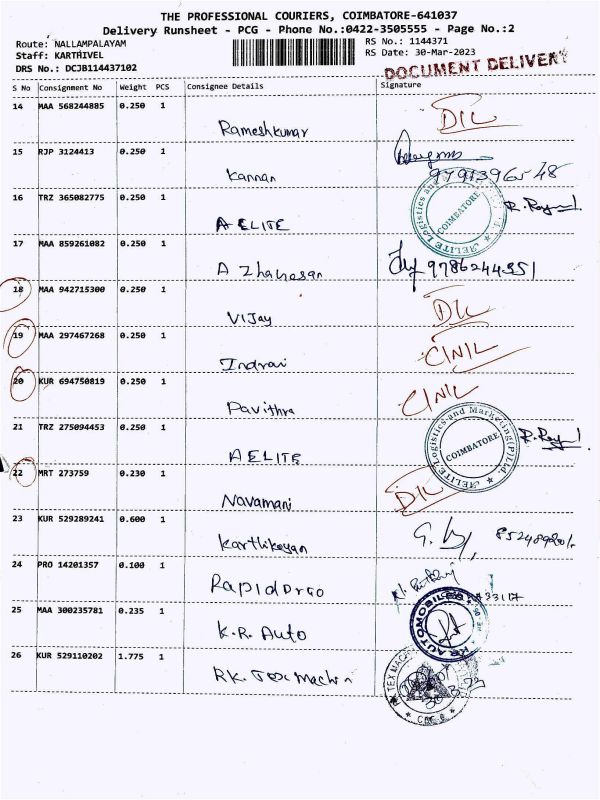 THE PROFESSIONAL COURIERS, COIMBATORE-641037
Delivery Runsheet - PCG - Phone No.:0422-3505555 - Page No.:2
Route: NALLAMPALAYAM
RS No.: 1144371
Staff: KARTHIVEL
RS Date: 30-Mar-2023
DRS No.: DCJB114437102
DOCUMENT DELIVERY
S No Consignment No Weight PCS Consignee Details Signature
14 MAA 568244885 0.250 1
Rameshkumar DIL
15 RJP 3124413 0.250 1
Kannan 9791396548
16 TRZ 365082775 0.250 1
AELITE COIMBATORE
17 MAA 859261082 0.250 1
A 9786244351
18 MAA 942715300 0.250 1
Vijay DIL
19 MAA 297467268 0.250 1
Indrani CINIL
20 KUR 694750819 0.250 1
Pavithra CINIL
21 TRZ 275094453 0.250 1
AELITE ÆLITE Logistics and Marketing(P)Ltd. COIMBATORE
22 MRT 273759 0.230 1
Navamani DIL
23 KUR 529289241 0.600 1
Karthikeyan
24 PRO 14201357 0.100 1
25 MAA 300235781 0.235 1
K.R. Auto KR AUTOMOBILES
26 KUR 529110202 1.775 1
RK. Tex Machin